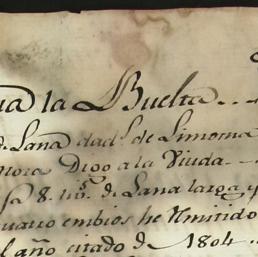 la Buelta...
Lana dad.^s de Limosna
Digo a la Viuda
8. lib.^s de Lana larga y
embios he Rmitido
l año citado de 1804